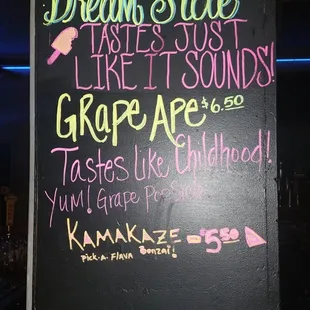 Dream Sicle
TASTES JUST
LIKE IT SOUNDS!
GRAPE APE $6.50
Tastes Like Childhood!
YUM! Grape Popsicle
KAMAKAZE - $5.50
Pick.A.FLAVA Bonzai!